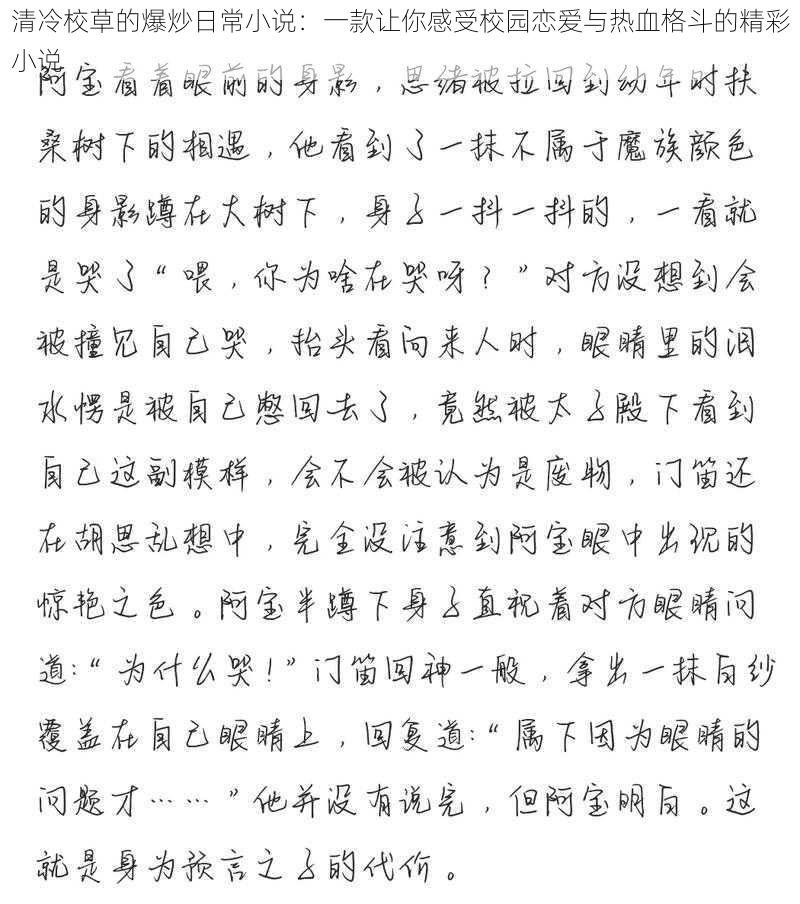 清冷校草的爆炒日常小说：一款让你感受校园恋爱与热血格斗的精彩
小说
阿宝看着眼前的身影，思绪被拉回到幼年时扶
桑树下的相遇，他看到了一抹不属于魔族颜色
的身影蹲在大树下，身子一抖一抖的，一看就
是哭了“喂，你为啥在哭呀？”对方没想到会
被撞见自己哭，抬头看向来人时，眼睛里的泪
水愣是被自己憋回去了，竟然被太子殿下看到
自己这副模样，会不会被认为是废物，门笛还
在胡思乱想中，完全没注意到阿宝眼中出现的
惊艳之色。阿宝半蹲下身子直视着对方眼睛问
道:“为什么哭！”门笛回神一般，拿出一抹白纱
覆盖在自己眼睛上，回复道:“属下因为眼睛的
问题才……”他并没有说完，但阿宝明白。这
就是身为预言之子的代价。